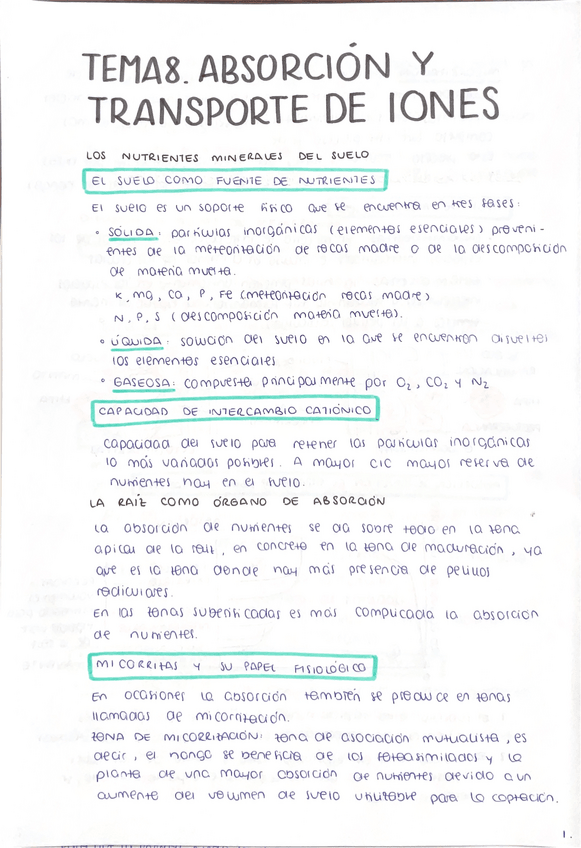 TEMA 8. ABSORCIÓN Y
TRANSPORTE DE IONES
LOS NUTRIENTES MINERALES DEL SUELO
EL SUELO COMO FUENTE DE NUTRIENTES
El suelo es un soporte físico que se encuentra en tres fases:
• SÓLIDA: partículas inorgánicas (elementos esenciales) proveni-
entes de la meteorización de rocas madre o de la descomposición
de materia muerta.
K, Mg, Ca, P, Fe (meteorización rocas madre)
N, P, S (descomposición materia muerta).
• LÍQUIDA: solución del suelo en la que se encuentran disueltos
los elementos esenciales
• GASEOSA: compuesta principalmente por O₂, CO₂ y N₂
CAPACIDAD DE INTERCAMBIO CATIÓNICO
Capacidad del suelo para retener las partículas inorgánicas
lo más variadas posibles. A mayor CIC mayor reserva de
nutrientes hay en el suelo.
LA RAÍZ COMO ÓRGANO DE ABSORCIÓN
La absorción de nutrientes se da sobre todo en la zona
apical de la raíz, en concreto en la zona de maduración, ya
que es la zona donde hay más presencia de pelillos
radiculares.
En las zonas suberificadas es más complicada la absorción
de nutrientes.
MICORRIZAS Y SU PAPEL FISIOLÓGICO
En ocasiones la absorción también se produce en zonas
llamadas de micorrización.
ZONA DE MICORRIZACIÓN: zona de asociación mutualista, es
decir, el hongo se beneficia de los fotoasimilados y la
planta de una mayor absorción de nutrientes devido a un
aumento del volumen de suelo utilizable para la captación.
1.